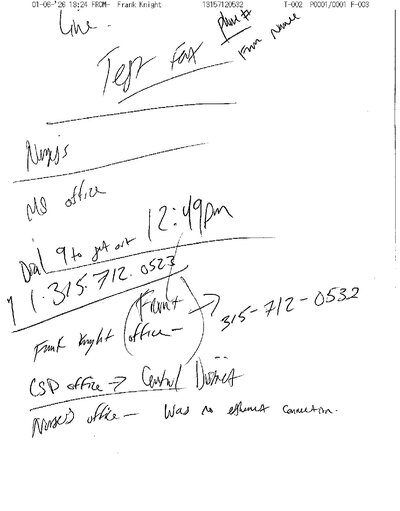 01-06-'26 18:24 FROM- Frank Knight 13157120532 T-002 P0001/0001 F-003
Line.
phone #
Firm Name
Test Fax
Nurse's
MS office
Dial 9 to get out 12:49pm
1.315.712.0523
Front
Frank Knight office - → 315-712-0532
CSD office → Central District
Nurse's office - Was no ethernet connection.